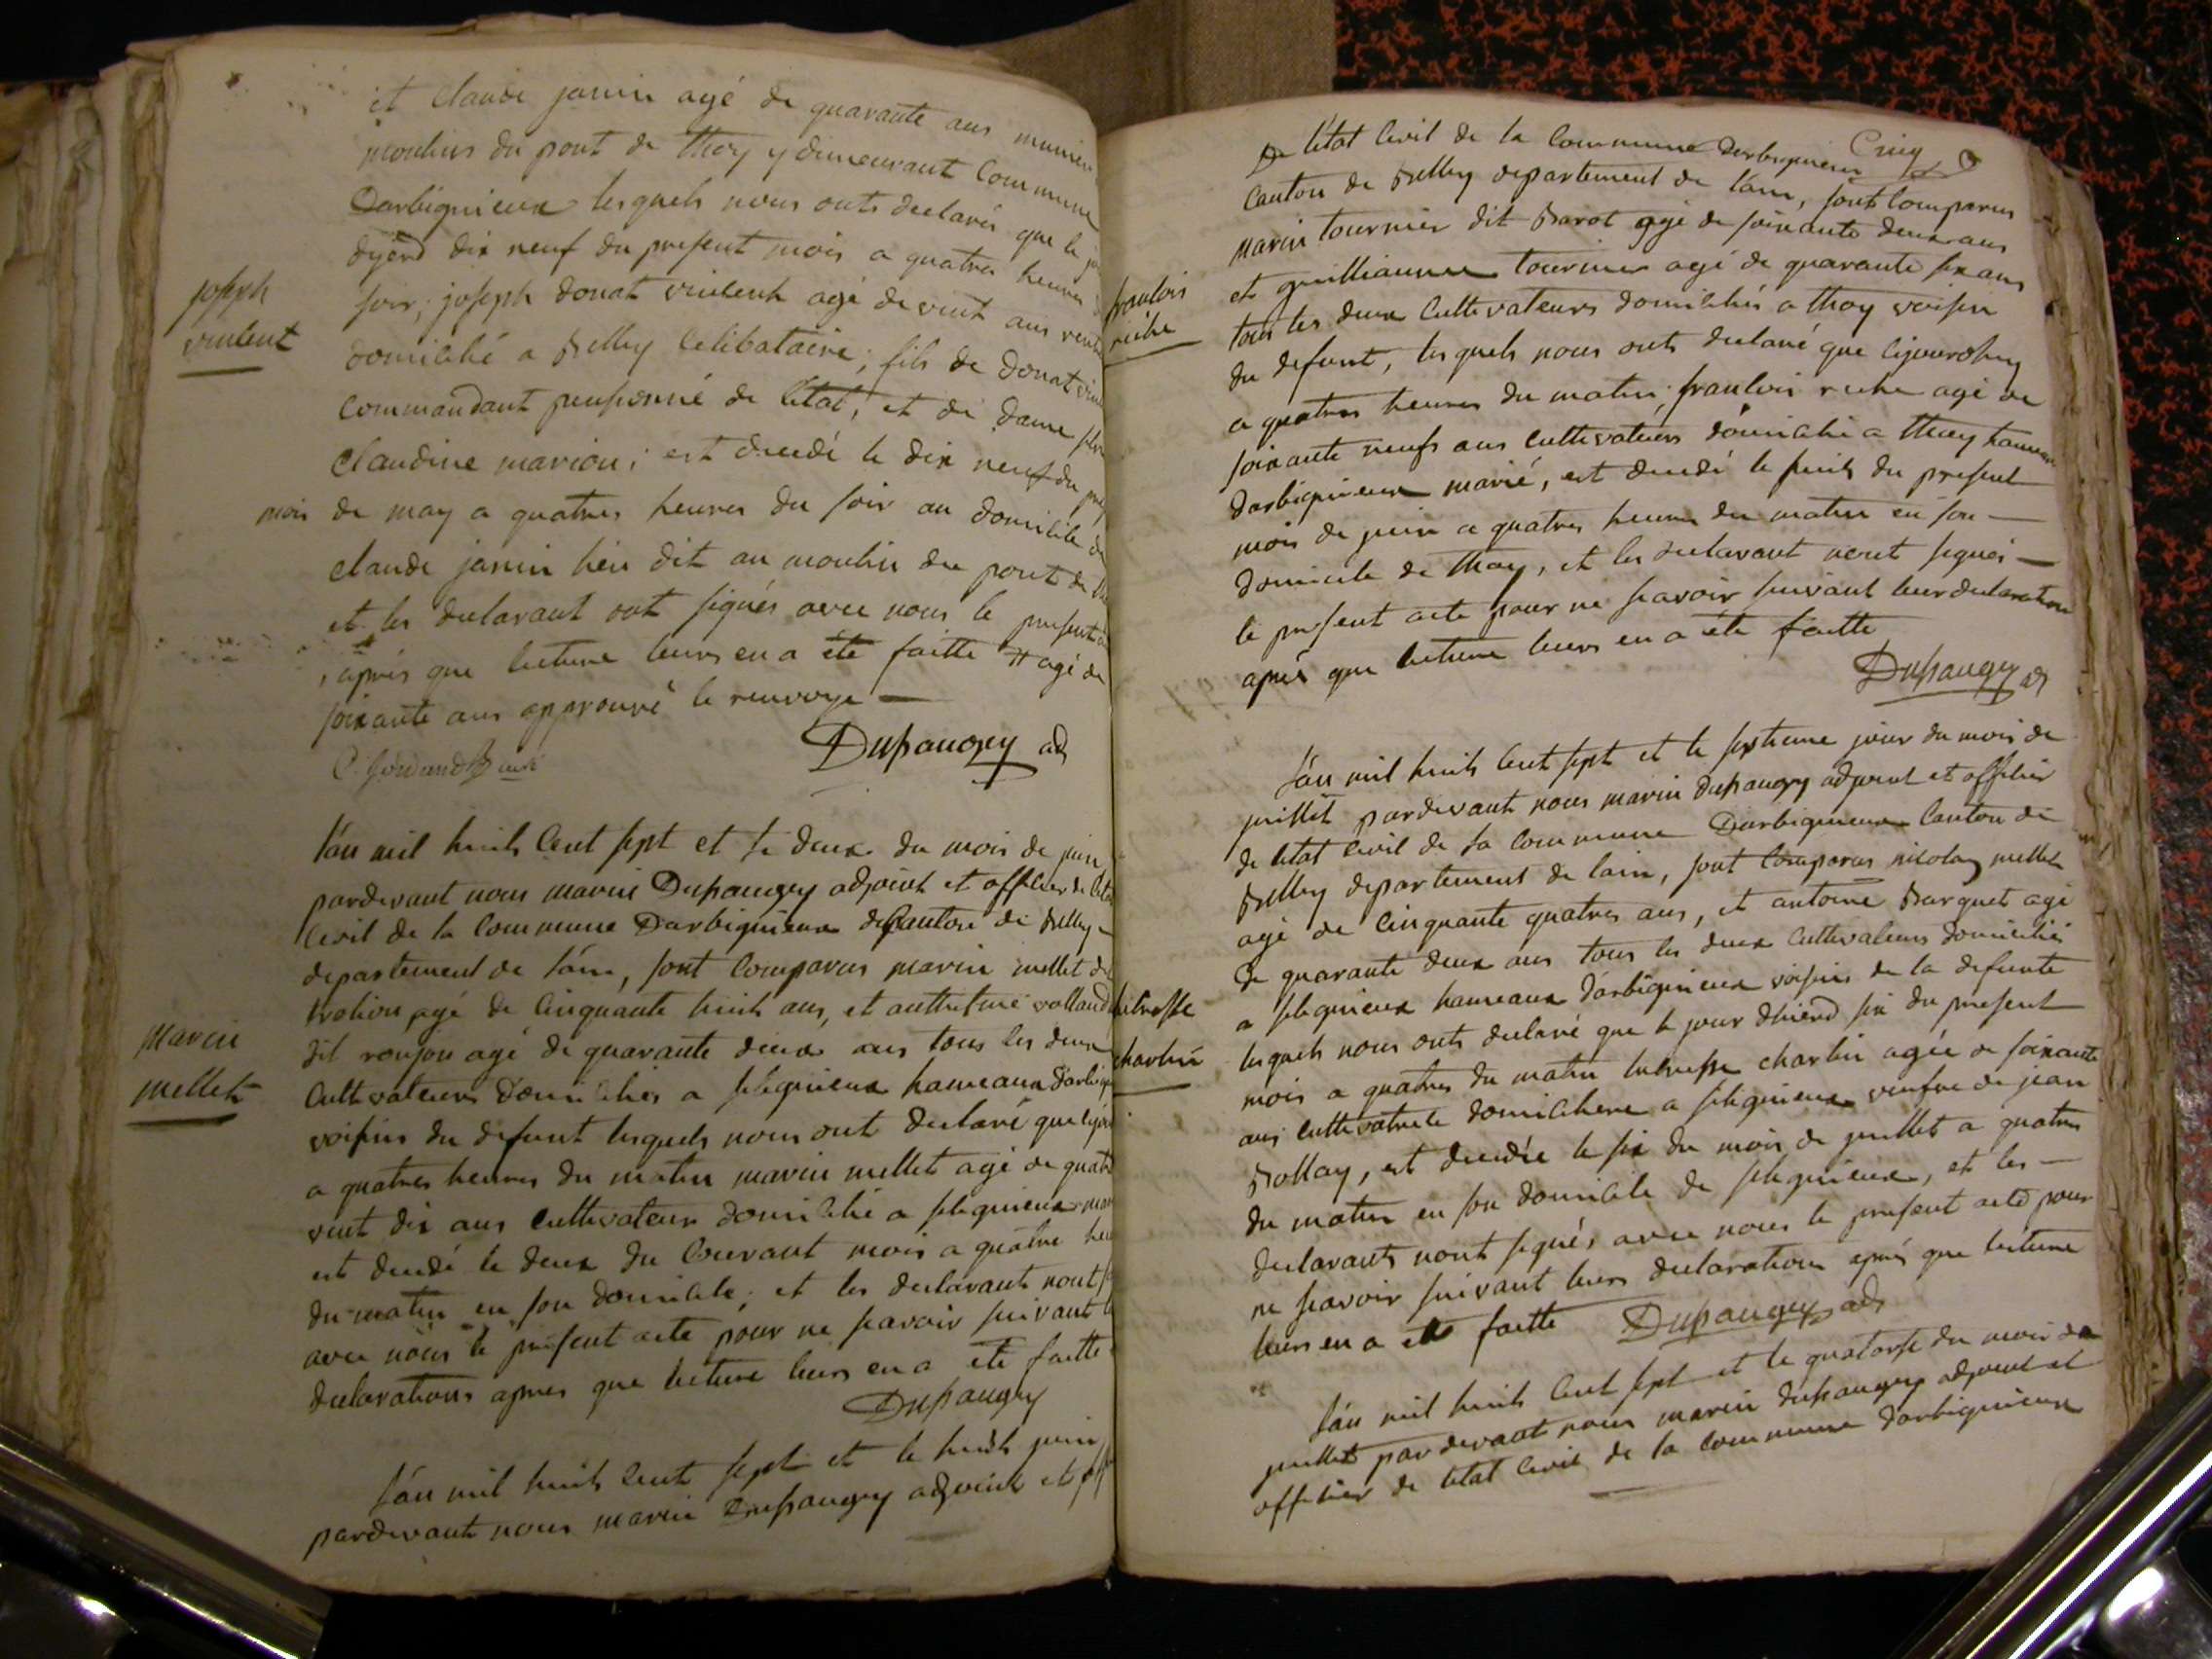 et Claude janin agé de quarante ans munier
moulins du pont de thoy y demeurant Commune
Darbignieux lesquels nous onts declarés que le
dyerd dix neuf du present mois a quatres heures
joseph
vincent
soir, joseph donat vincent agé de vint ans
domicilié a Belley Celibataire, fils de donat
Commandant pensionné de l'état, et de dame
Claudine marion; est decedé le dix neuf du
mois de may a quatres heures du soir au domicile de
claude janin lieu dit au moulin du pont de
et les declarant ont signés avec nous le present
, aprés que lecture leurs en a été faitte # agé de
soixante ans approuvé le renvoye
Dupaugey adj
l'án mil huit Cent sept et le deux du mois de juin
pardevant nous marin Dupaugey adjoint et officier de
Civil de la Commune Darbignieux de Canton de Belley
departement de l'áin, sont Comparus marin mellet
agé de Cinquante huit ans, et anthelme volland
dit agé de quarante deux ans tous les deux
Marin
mellet
Cultivateurs domicilies a hameaux
voisins du defunt lesquels nous ont declaré que
a quatres heures du matin marin mellet agé de quatre
vint dix ans Cultivateur domicilié a
est decedé le deux du Courant mois a quatre
du matin en son domicile; et les declarants nont
avec nous le present acte pour ne scavoir suivant
declarations apres que lecture leurs en a été faitte
Dupaugey
l'án mil huit Cent sept et le huit juin
pardevant nous marin Dupaugey adjoint et
Cinq
De l'état Civil de la Commune Darbignieux
Canton de Belley departement de l'áin, sont Comparus
Marin tournier dit Barot agé de soixante deux ans
et guilliaume tournier agé de quarante six ans
francois
riche
tous les deux Cultivateurs domiciliés a thoy voisin
du defunt, lesquels nous onts declaré que
a quatres heures du matin, francois riche agé de
soixante neufs ans Cultivateurs domicilié a thoy hameau
darbignieux marié, est decedé le huit du present
mois de juin a quatres heures du matin en son
domicile de thoy, et les declarant nont signés
le present acte pour ne scavoir suivant leur declaration
aprés que lecture leurs en a été faitte
Dupaugey adj
l'án mil huit Cent sept et le septieme jour du mois de
juillet pardevant nous marin dupaugey adjoint et officier
de letat Civil de la Commune Darbignieux Canton de
Belley departement de lain, sont Comparus nicolas mellet
agé de Cinquante quatres ans, et antoine Barquet agé
de quarante deux ans tous les deux Cultivateurs domiciliés
a hameaux darbignieux voisins de la defunte
charlin
lesquels nous onts declaré que le jour dhierd six du present
mois a quatres du matin charlin agée de soixante
ans Cultivatrice domiciliere a veufve de jean
Bollay, est decedée le six du mois de juillet a quatres
du matin en son domicile de et les
declarants nont signés avec nous le present acte pour
ne scavoir suivant leurs declarations aprés que lecture
leurs en a été faitte Dupaugey adj
l'án mil huit Cent sept et le quatorse du mois de
juillet pardevant nous marin dupaugey adjoint et
officier de letat Civil de la Commune darbignieux